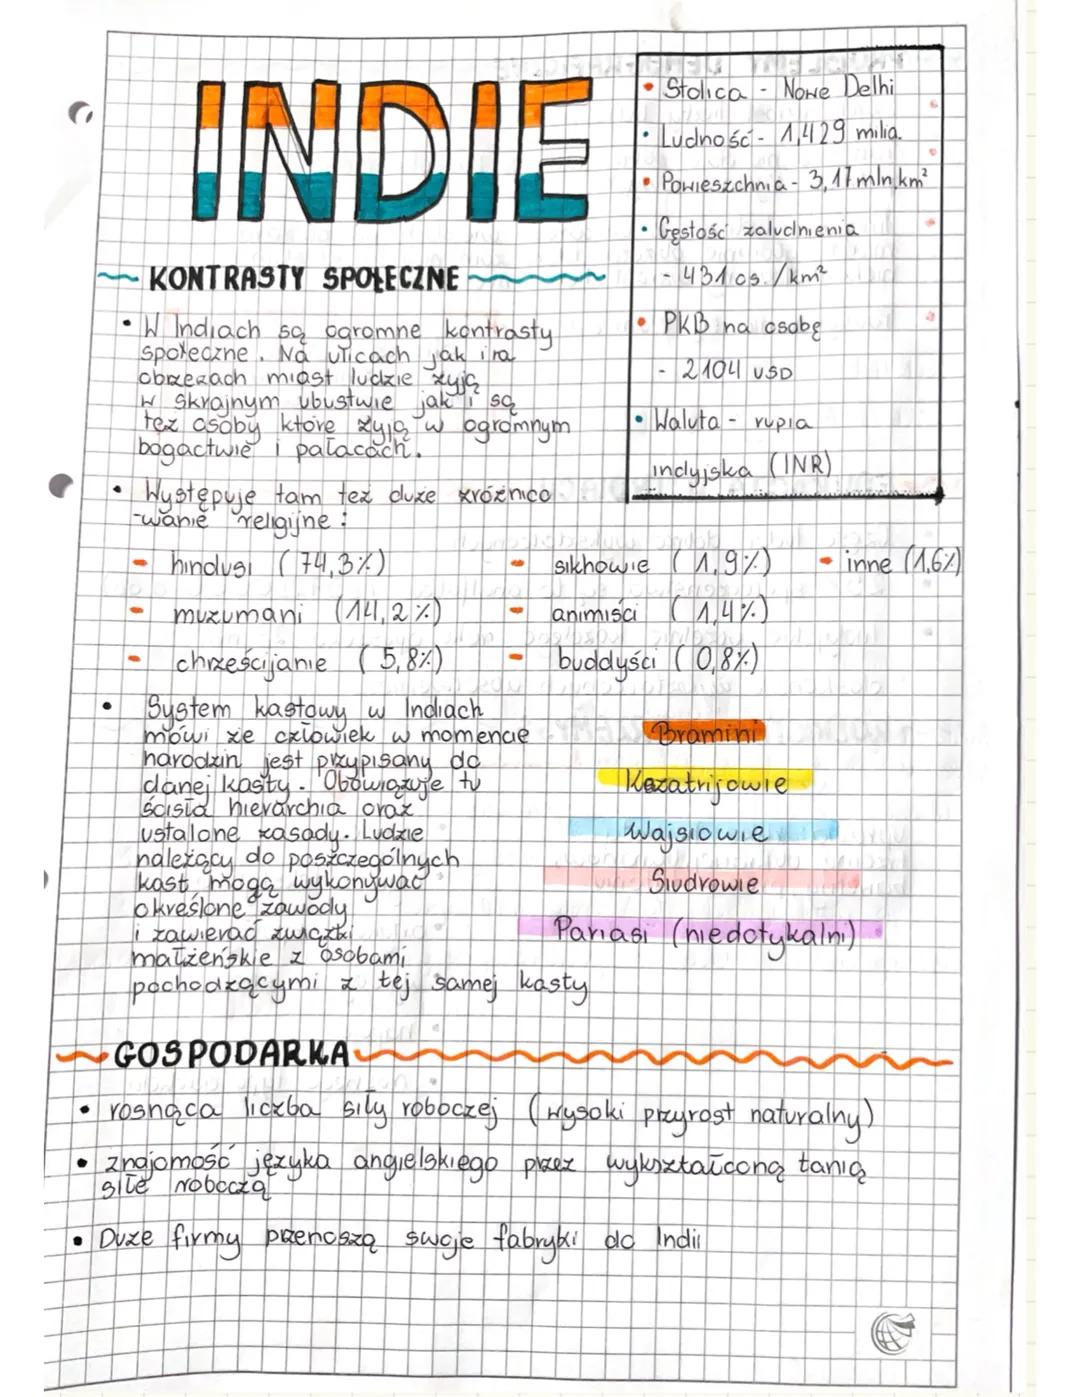 INDIE
• Stolica - Nowe Delhi
• Ludność - 1,429 milia.
• Powieszchnia - 3,17 mln km²
• Gęstość zaludnienia
- 431 os. /km²
• PKB na osobę
- 2104 USD
• Waluta - rupia
indyjska (INR)
KONTRASTY SPOŁECZNE
• W Indiach są ogromne kontrasty
społeczne. Na ulicach jak i na
obrzeżach miast ludzie żyją
w skrajnym ubustwie jak i są
też osoby które żyją w ogromnym
bogactwie i pałacach.
• Występuje tam też duże zróżnico
-wanie religijne:
- hindusi (74,3%)
- sikhowie (1,9%)
- inne (1,6%)
- muzumani (14,2%)
- animiści (1,4%)
- chrześcijanie (5,8%)
- buddyści (0,8%)
• System kastowy w Indiach
mówi że człowiek w momencie
narodzin jest przypisany do
danej kasty. Obowiązuje tu
ścisła hierarchia oraz
ustalone zasady. Ludzie
należący do poszczególnych
kast mogą wykonywać
określone zawody
i zawierać związki
małżeńskie z osobami
pochodzącymi z tej samej kasty
Bramini
Kszatrijowie
Wajsiowie
Siudrowie
Pariasi (niedotykalni)
GOSPODARKA
• rosnąca liczba siły roboczej (wysoki przyrost naturalny)
• znajomość języka angielskiego przez wykształconą tanią
siłę roboczą
• Duże firmy przenoszą swoje fabryki do Indii